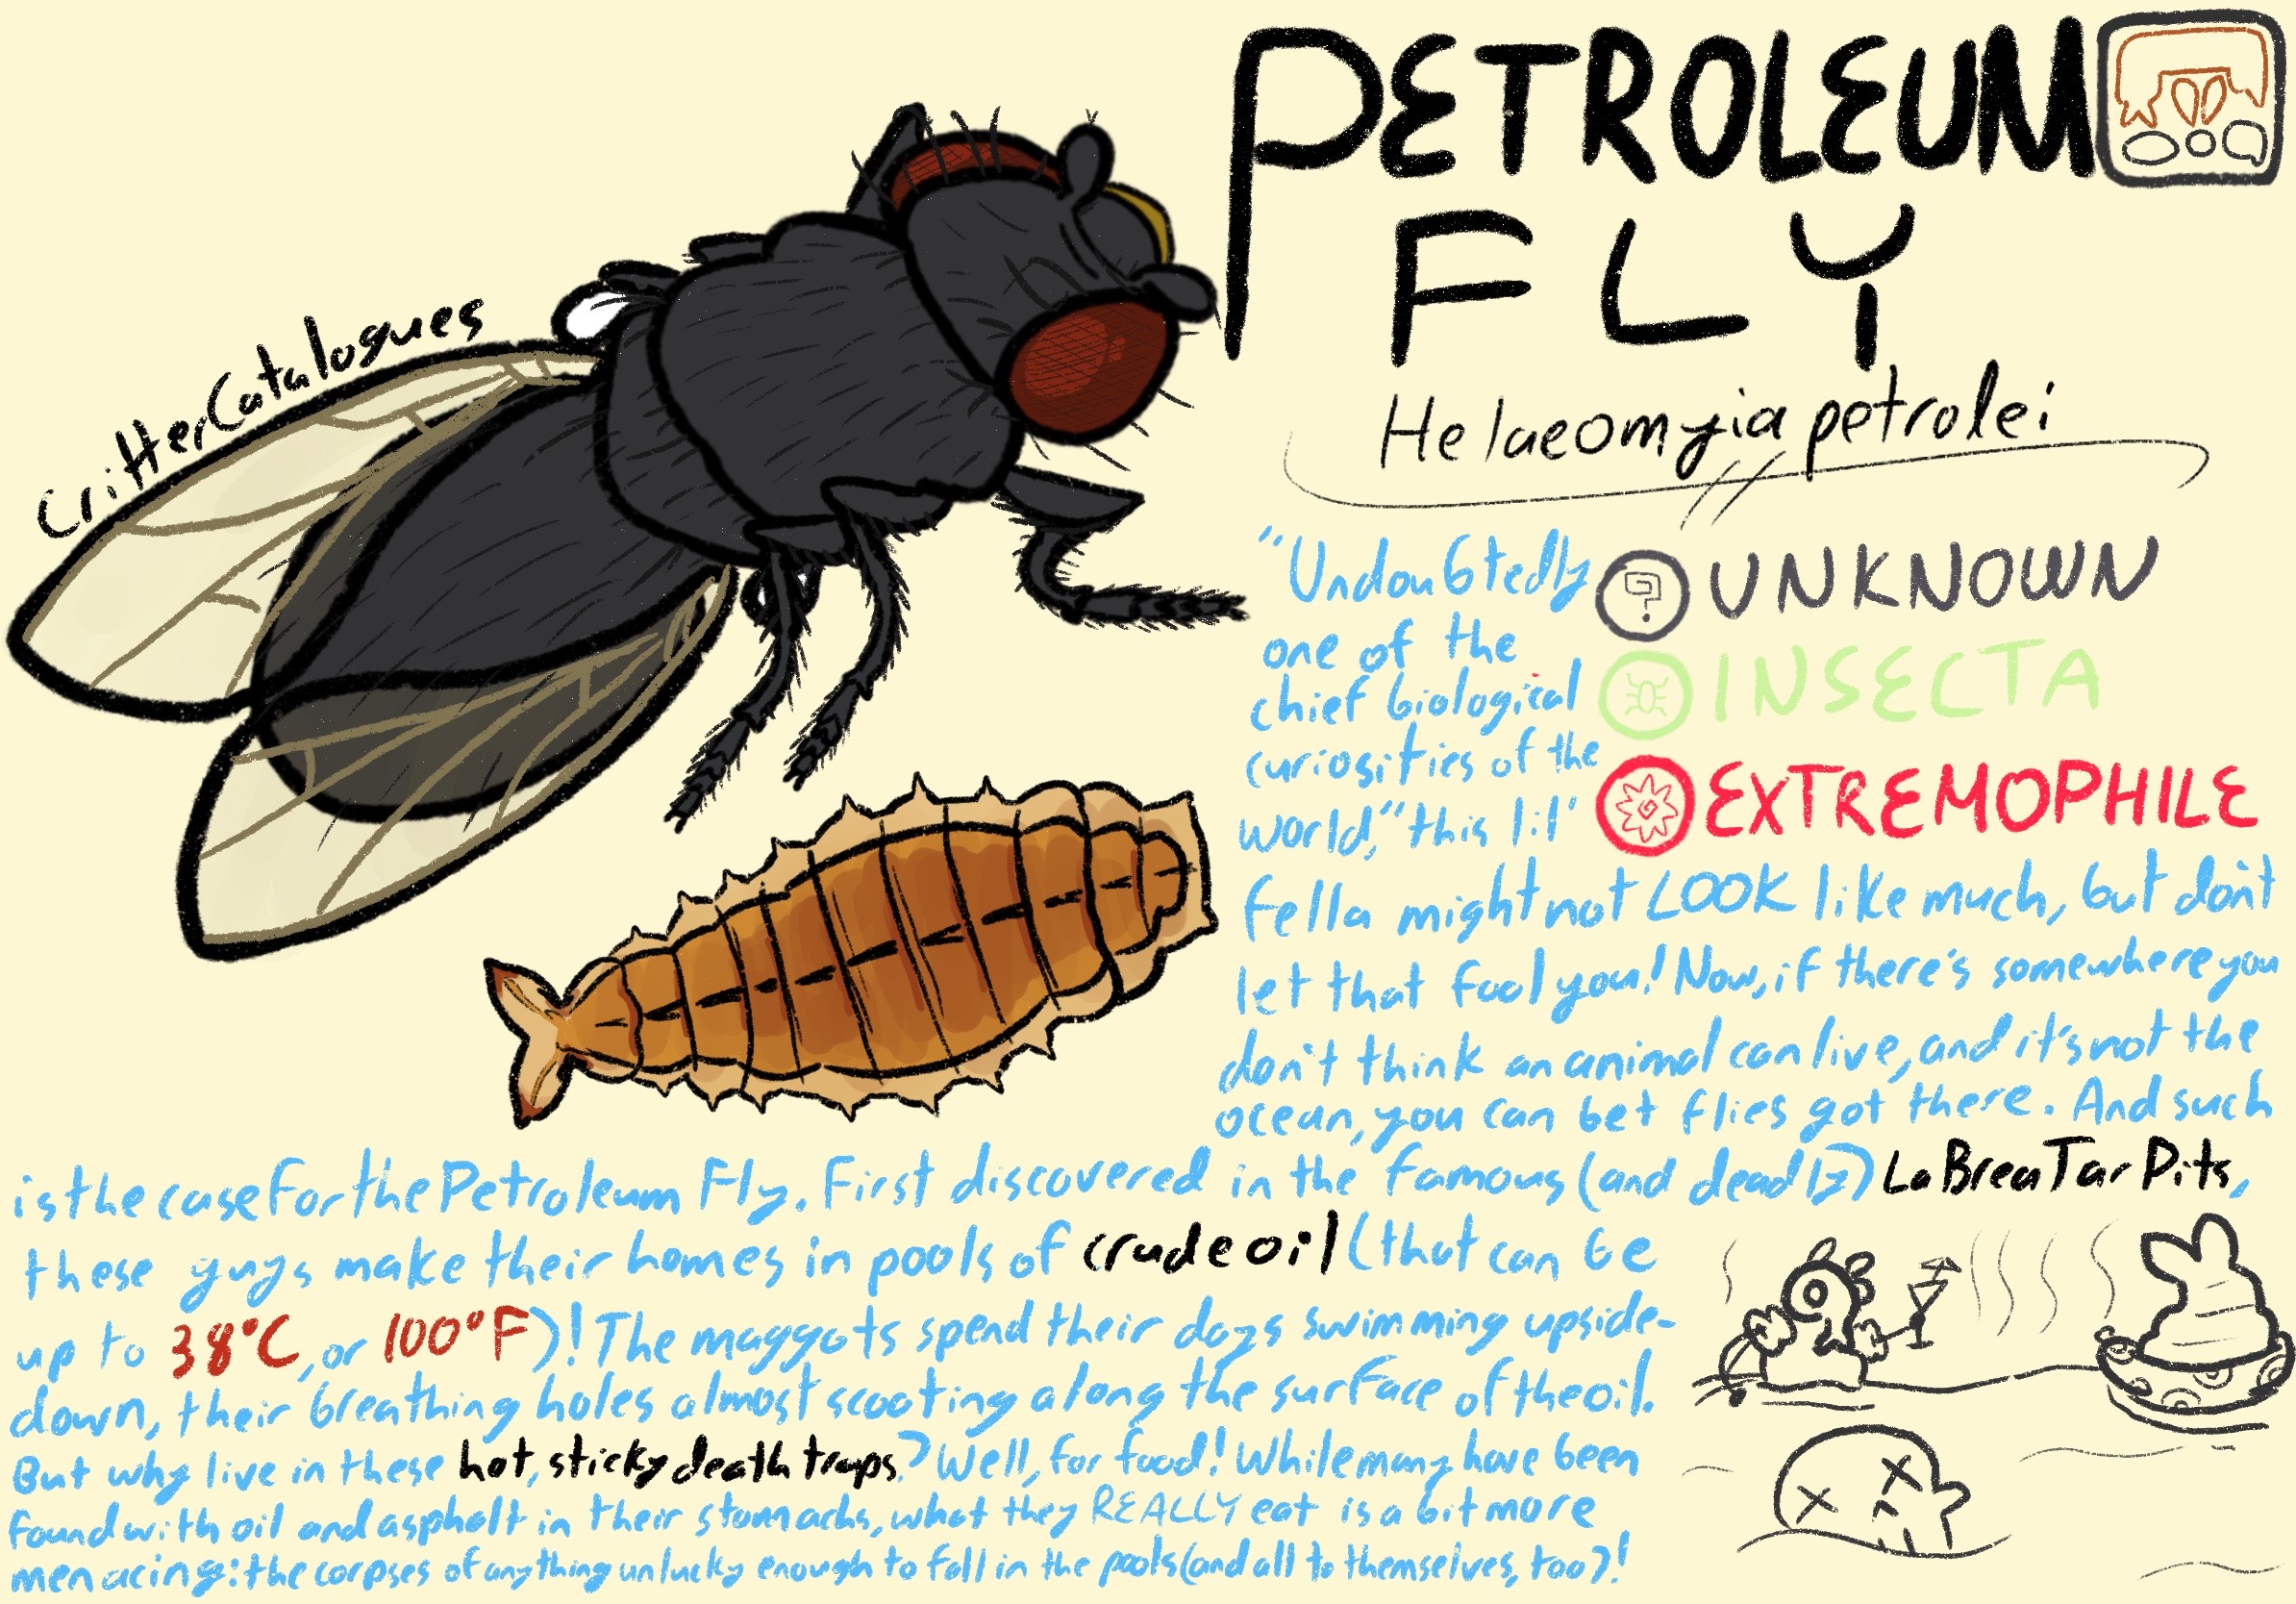 PETROLEUM
FLY
Helaeomyia petrolei
CritterCatalogues
UNKNOWN
INSECTA
EXTREMOPHILE
"Undoubtedly
one of the
chief biological
curiosities of the
world," this lil'
fella might not LOOK like much, but don't
let that fool you! Now, if there's somewhere you
don't think an animal can live, and it's not the
ocean, you can bet flies got there. And such
is the case for the Petroleum Fly. First discovered in the famous (and deadly) La Brea Tar Pits,
these guys make their homes in pools of crude oil (that can be
up to 38°C, or 100°F)! The maggots spend their days swimming upside-
down, their breathing holes almost scooting along the surface of the oil.
But why live in these hot, sticky death traps? Well, for food! While many have been
found with oil and asphalt in their stomachs, what they REALLY eat is a bit more
menacing: the corpses of anything unlucky enough to fall in the pools (and all to themselves, too)!